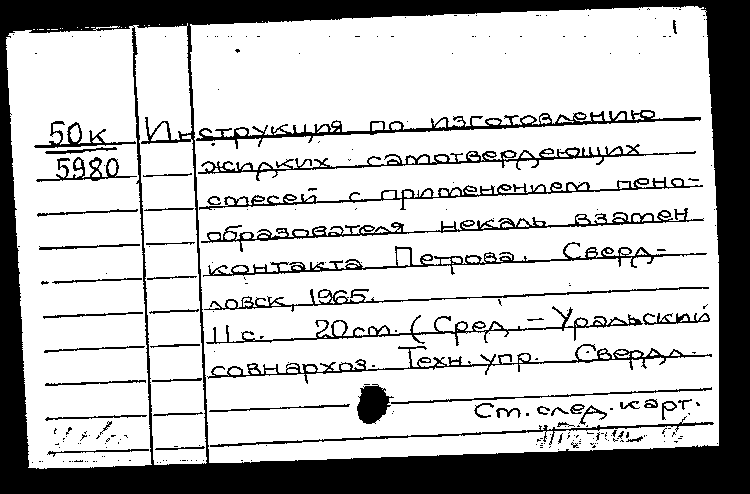 1
50к Инструкция по изготовлению
5980 жидких самотвердеющих
смесей с применением пено-
образователя некаль взамен
контакта Петрова. Сверд-
ловск, 1965.
11 с. 20 см. (Сред.-Уральский
совнархоз. Техн. упр. Свердл.
См. след. карт.